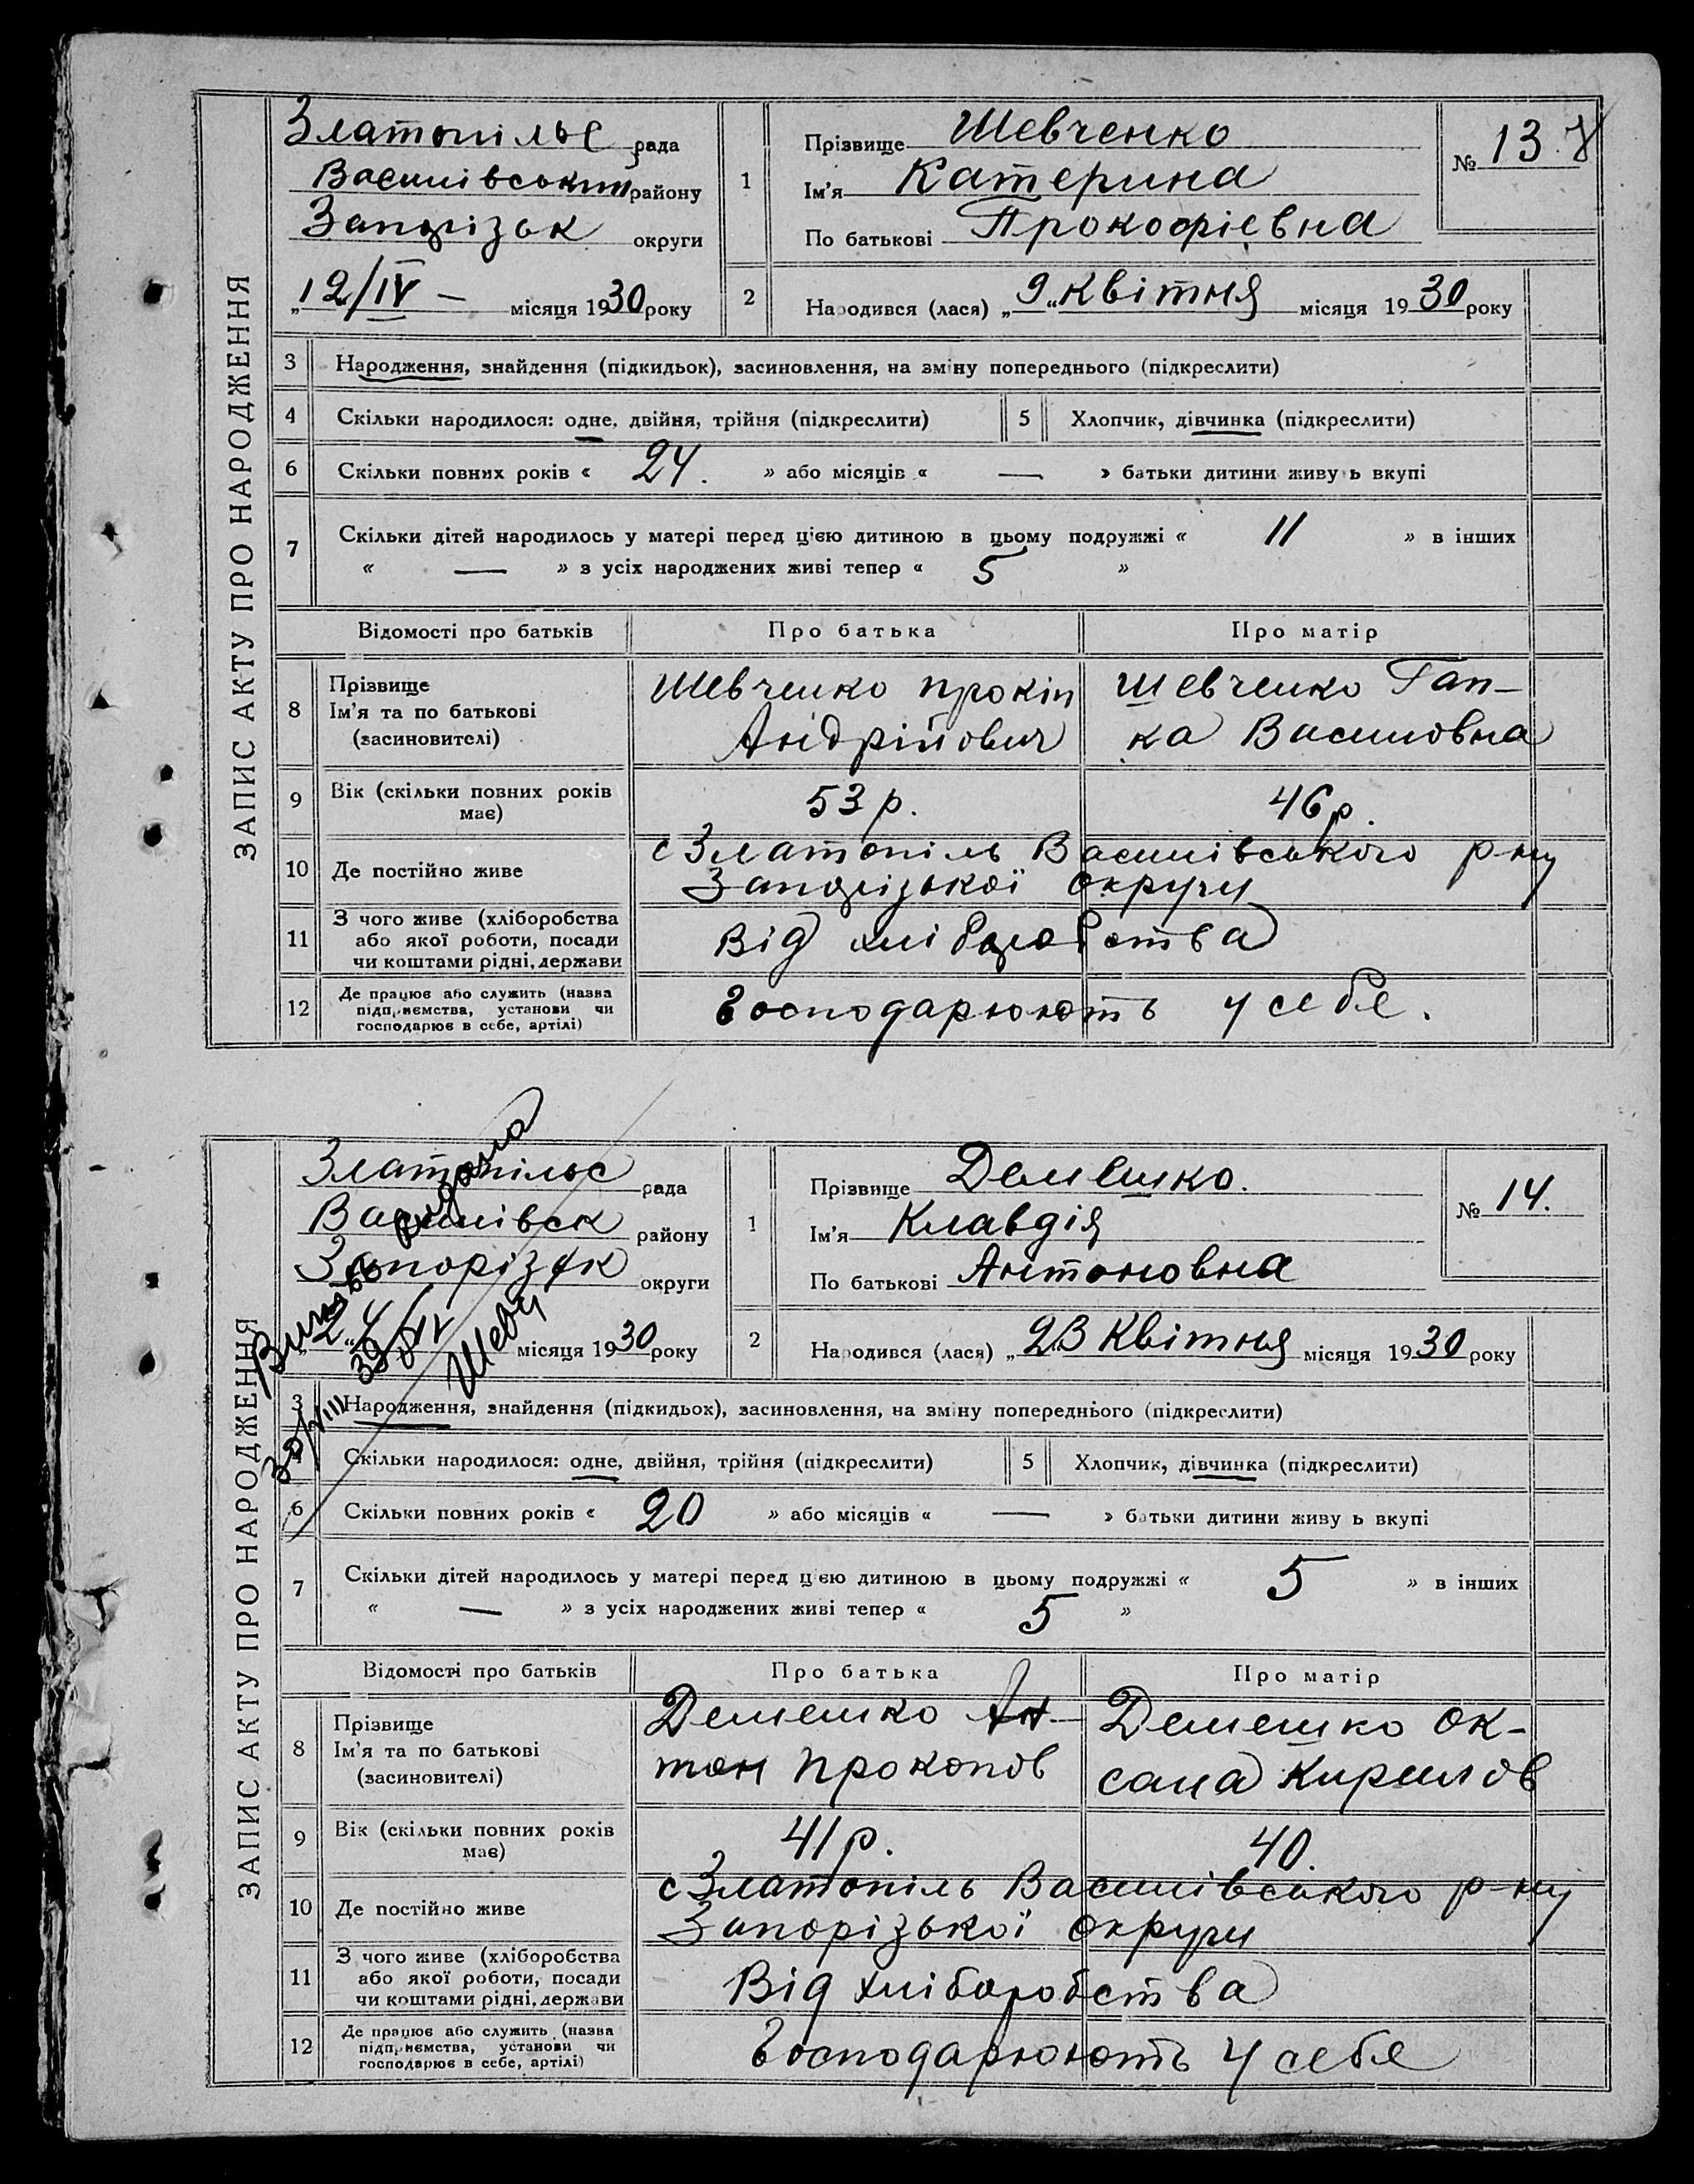 ЗАПИС АКТУ ПРО НАРОДЖЕННЯ
Златопільс рада
Василівський району
Запорізьк округи
„12/IV — місяця 1930 року
1
Прізвище Шевченко
Ім'я Катерина
По батькові Прокофієвна
№ 13
2
Народився (лася) „9“ Квітня місяця 1930 року
3 Народження, знайдення (підкидьок), засиновлення, на зміну попереднього (підкреслити)
4 Скільки народилося: одне, двійня, трійня (підкреслити) 5 Хлопчик, дівчинка (підкреслити)
6 Скільки повних років « 24. » або місяців « — » батьки дитини живу ь вкупі
7 Скільки дітей народилось у матері перед цією дитиною в цьому подружжі « 11 » в інших
« — » з усіх народжених живі тепер « 5 »
Відомості про батьків Про батька Про матір
8 Прізвище
Ім'я та по батькові
(засиновителі)
Шевченко Прокіп
Андрійович
Шевченко Гап-
ка Василовна
9 Вік (скільки повних років
має)
53 р. 46 р.
10 Де постійно живе
с Златопіль Василівського р-ну
Запорізької округи
11 З чого живе (хліборобства
або якої роботи, посади
чи коштами рідні, держави
Від хліборобства
12 Де працює або служить (назва
підприємства, установи чи
господарює в себе, артілі)
Господарюють у себе.
ЗАПИС АКТУ ПРО НАРОДЖЕННЯ
Златопільс рада
Василівск району
Запорізьк округи
місяця 1930 року
30/VIII 39
1
Прізвище Демешко.
Ім'я Клавдія
По батькові Антоновна
№ 14.
2
Народився (лася) „23 Квітня місяця 1930 року
3 Народження, знайдення (підкидьох), засиновлення, на зміну попереднього (підкреслити)
Скільки народилося: одне, двійня, трійня (підкреслити) 5 Хлопчик, дівчинка (підкреслити)
6 Скільки повних років « 20 » або місяців « — » батьки дитини живу ь вкупі
7 Скільки дітей народилось у матері перед цією дитиною в цьому подружжі « 5 » в інших
« — » з усіх народжених живі тепер « 5 »
Відомості про батьків Про батька Про матір
8 Прізвище
Ім'я та по батькові
(засиновителі)
Демешко Ан-
тон Прокопов
Демешко Ок-
сана Кирилов
9 Вік (скільки повних років
має)
41 р. 40.
10 Де постійно живе
с Златопіль Василівського р-ну
Запорізької округи
11 З чого живе (хліборобства
або якої роботи, посади
чи коштами рідні, держави
Від хліборобства
12 Де працює або служить (назва
підприємства, установи чи
господарює в себе, артілі)
Господарюють у себе